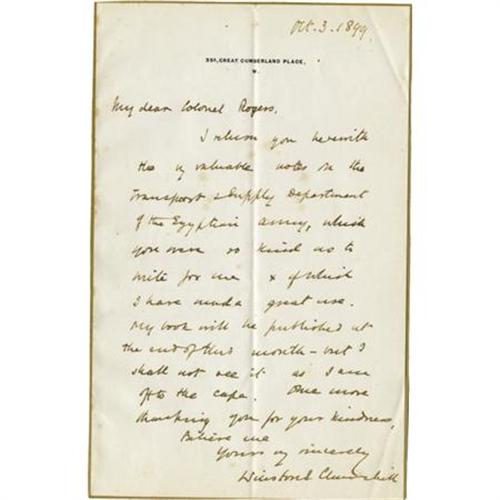 Oct. 3. 1899.
35A, GREAT CUMBERLAND PLACE,
W.
My dear Colonel Rogers,
I return you herewith
the v valuable notes on the
Transport & Supply Department
of the Egyptian army, which
you were so kind as to
write for me & of which
I have made great use.
My book will be published at
the end of this month - but I
shall not see it as I am
off to the Cape. Once more
thanking you for your kindness,
Believe me
Yours vy sincerely
Winston S Churchill